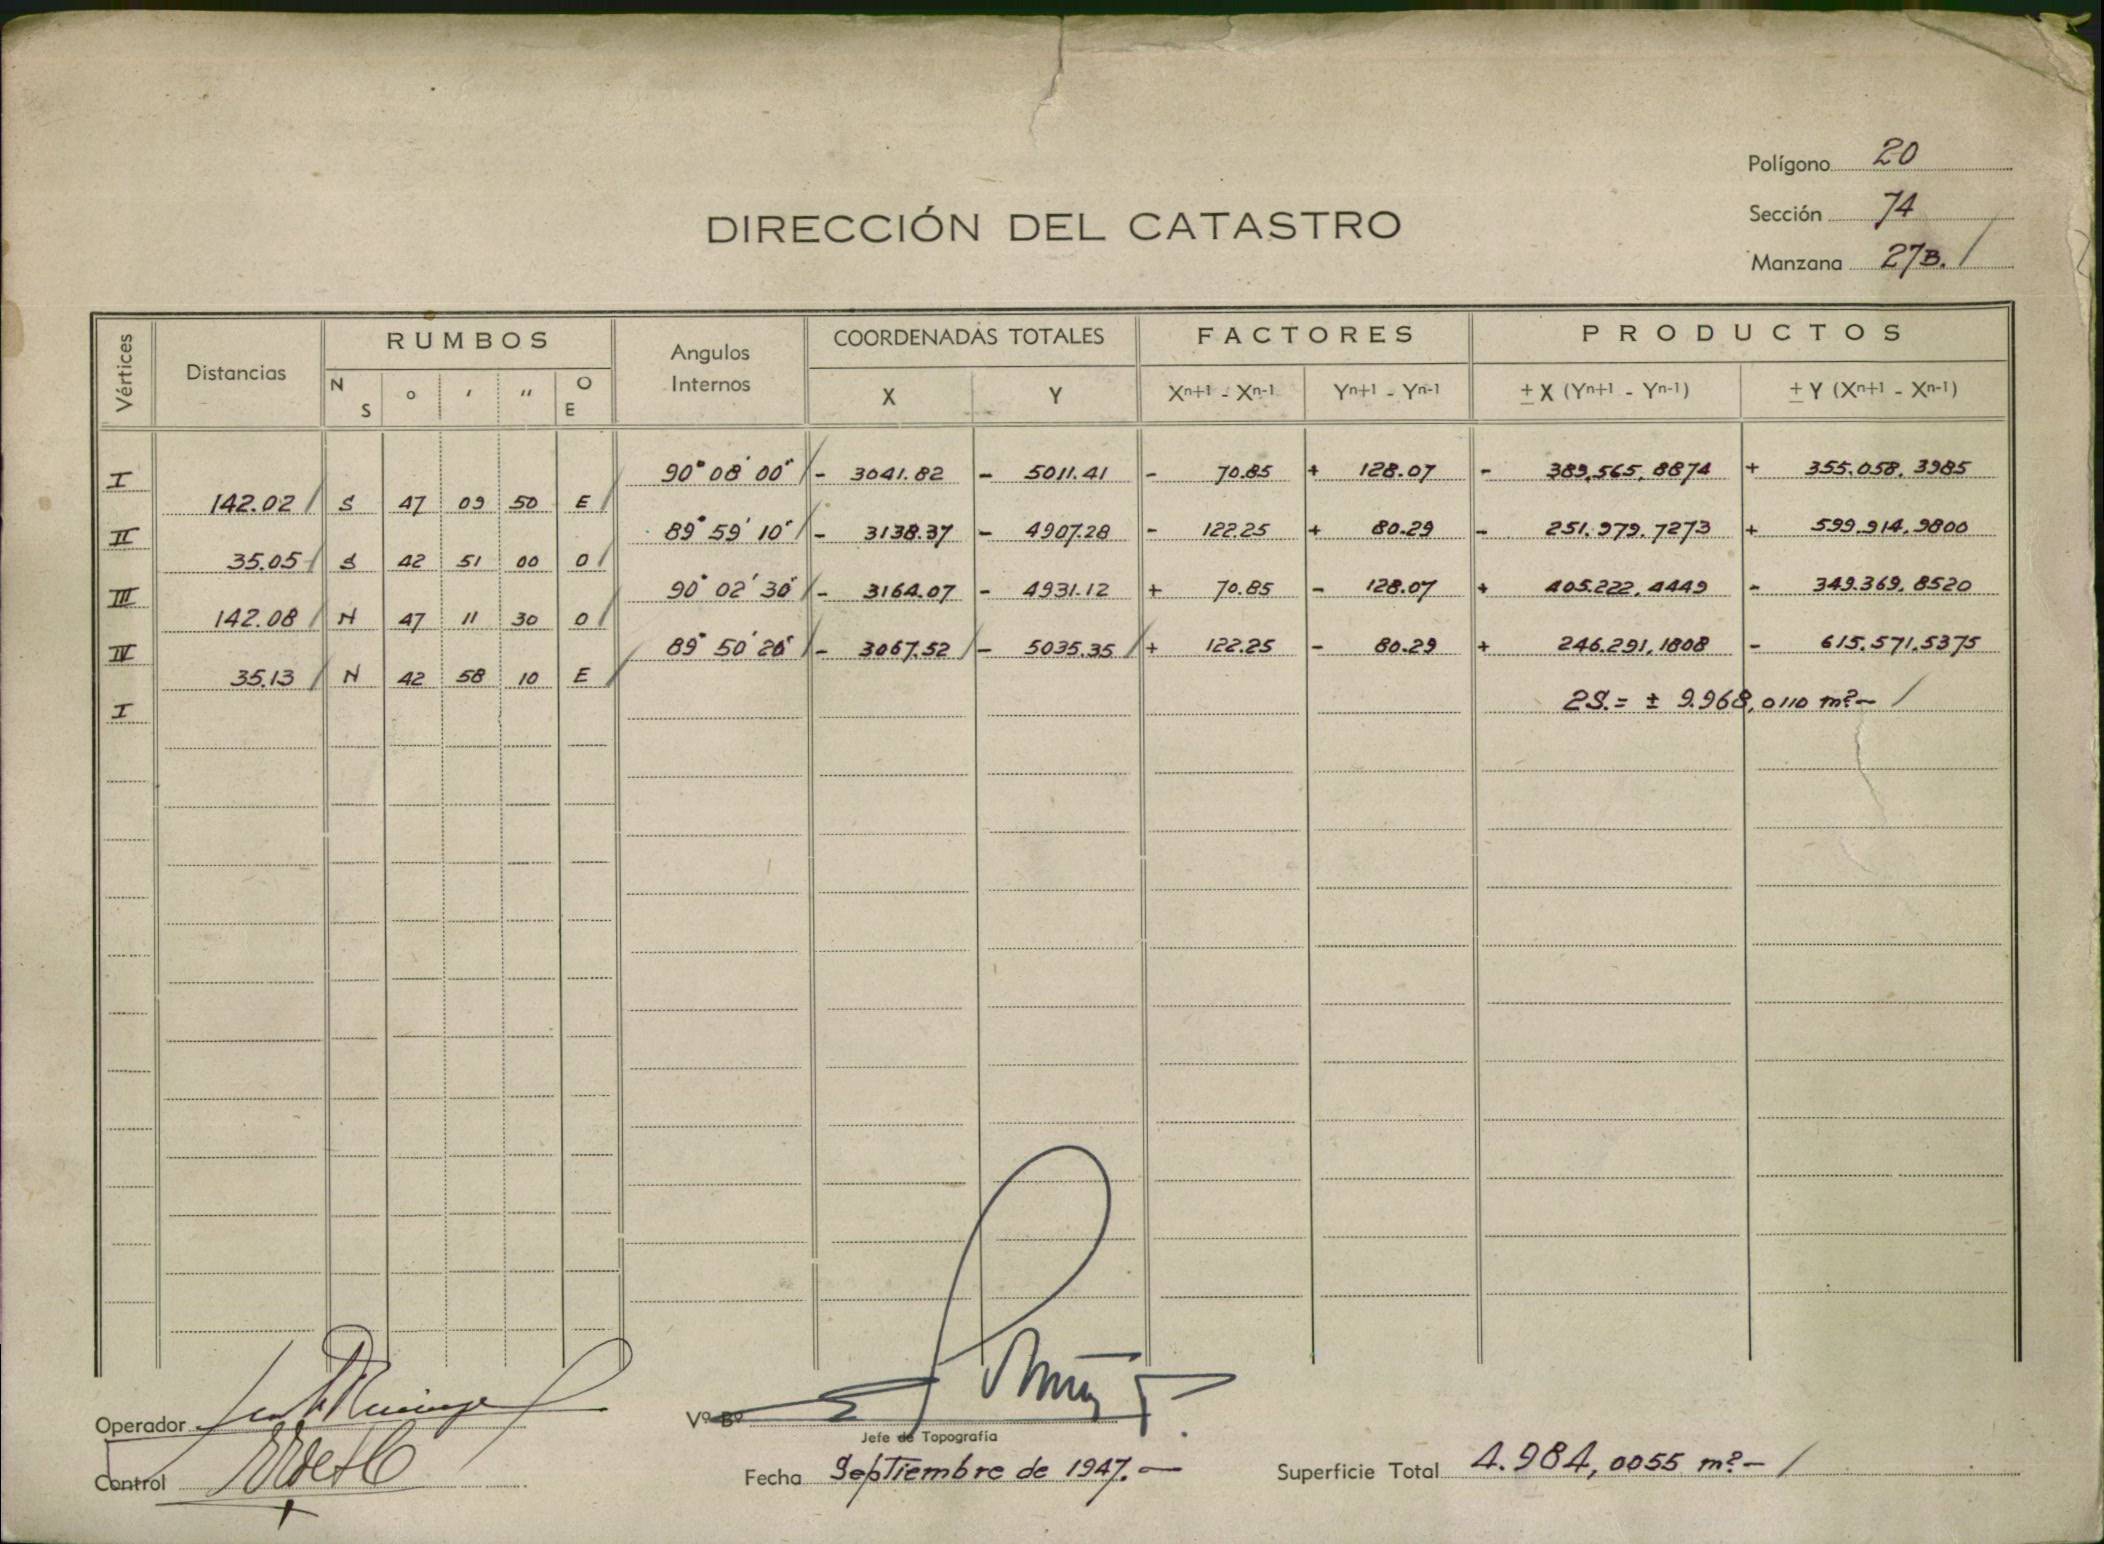 Polígono 20
Sección 74
DIRECCIÓN DEL CATASTRO
Manzana 27B. /
Vértices Distancias RUMBOS Angulos Internos COORDENADAS TOTALES FACTORES PRODUCTOS
N S ° ′ ″ O E X Y Xn+1 - Xn-1 Yn+1 - Yn-1 ± X (Yn+1 - Yn-1) ± Y (Xn+1 - Xn-1)
I 90° 08' 00" - 3041.82 - 5011.41 - 70.85 + 128.07 - 389,565,8874 + 355.058,3985
142.02 S 47 09 50 E
II 89° 59' 10" - 3138.37 - 4907.28 - 122.25 + 80.29 - 251.979,7273 + 599.914,9800
35.05 S 42 51 00 O
III 90° 02' 30" - 3164.07 - 4931.12 + 70.85 - 128.07 + 405.222,4449 - 349.369,8520
142.08 N 47 11 30 O
IV 89° 50' 20" - 3067.52 - 5035.35 + 122.25 - 80.29 + 246.291,1808 - 615.571,5375
35.13 N 42 58 10 E
I 2S.= ± 9.968,0110 m².- /
Operador
Vº Bº
Jefe de Topografía
Control
Fecha Septiembre de 1947.-
Superficie Total 4.984,0055 m².- /